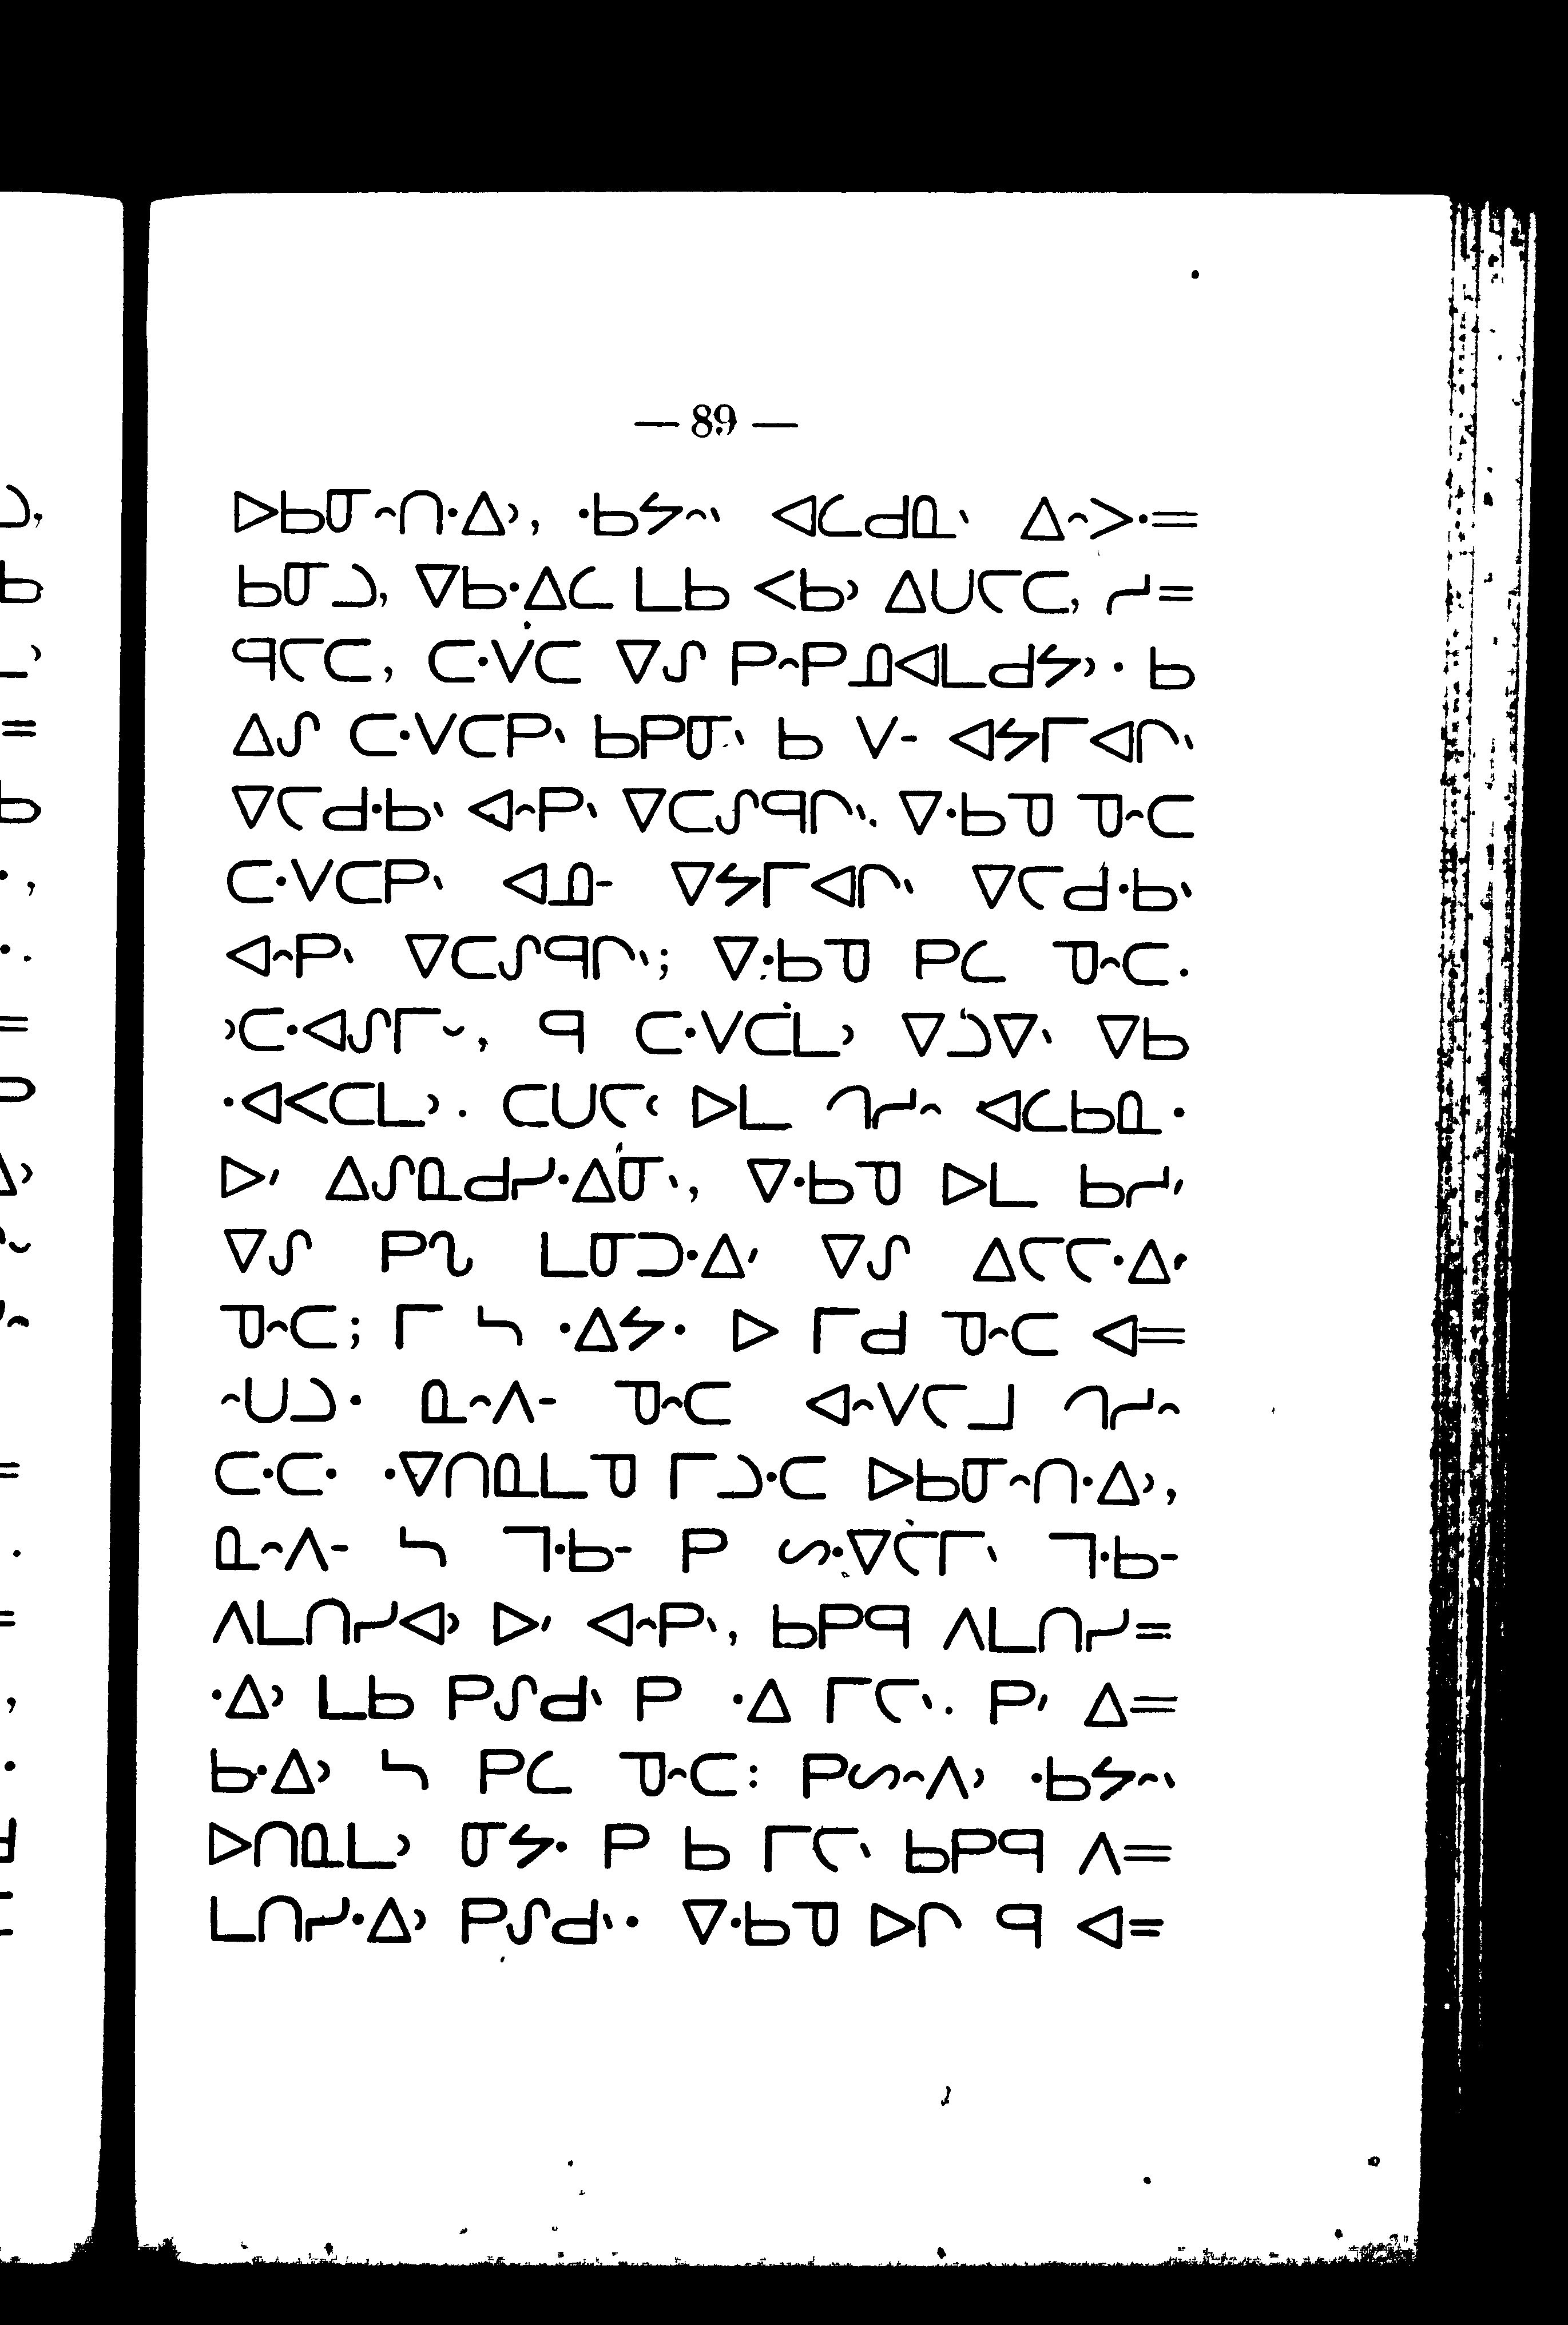 — 89 —
ᐅᑲᓂᐢᑎᐧᐃᐣ, ᐧᑲᔭᐢᐠ ᐊᓚᑯᓇᐠ ᐃᐢᐳᐧ=
ᑲᓂᓗ, ᐁᑲᐧᐃᓚ ᒪᑲ ᐸᑲᐣ ᐃᑌᓕᑕ, ᓯ=
ᑫᓕᑕ, ᑕᐧᐯᑕ ᐁᔑ ᑭᐢᑭᓄᐊᒪᑯᔭᐣ᙮ ᑲ
ᐃᔑ ᑕᐧᐯᑕᑭᐠ ᑲᑭᓂᐠ ᑲ ᐯ- ᐊᔭᒥᐊᒋᐠ
ᐁᓕᑯᐧᑲᐠ ᐊᐢᑭᐠ ᐁᑕᔑᑫᒋᐠ. ᐁᐧᑲᓀ ᓀᐢᑕ
ᑕᐧᐯᑕᑭᐠ ᐊᓄ- ᐁᔭᒥᐊᒋᐠ ᐁᓕᑯᐧᑲᐠ
ᐊᐢᑭᐠ ᐁᑕᔑᑫᒋᐠ; ᐁᐧᑲᓀ ᑭᓚ ᓀᐢᑕ.
ᐣᑕᐧᐊᔑᒥᐨ, ᑫ ᑕᐧᐯᑕᒪᐣ ᐁᓗᐁᐠ ᐁᑲ
ᐧᐊᐸᑕᒪᐣ. ᑕᑌᓕᑦ ᐅᒪ ᒉᓯᐢ ᐊᓚᑲᓇ᙮
ᐅᐟ ᐃᔑᓇᑯᓯᐧᐃᓂᐠ, ᐁᐧᑲᓀ ᐅᒪ ᑲᓯᐟ
ᐁᔑ ᑭᔐ ᒪᓂᑐᐧᐃᐟ ᐁᔑ ᐃᓕᓕᐧᐃᐟ
ᓀᐢᑕ; ᒥ ᓴ ᐧᐃᔭᐧ ᐅ ᒥᑯ ᓀᐢᑕ ᐊ=
ᐢᑌᓗᐧ ᓇᐢᐱ- ᓀᐢᑕ ᐊᐢᐯᓕᒧ ᒉᓯᐢ
ᑕᐧᑕᐧ ᐧᐁᑎᓇᒪᓀ ᒥᓗᐧᑕ ᐅᑲᓂᐢᑎᐧᐃᐣ,
ᓇᐢᐱ- ᓴ ᒣᐧᑲ- ᑭ ᔕᐧᐁᓕᒥᐠ ᒣᐧᑲ-
ᐱᒪᑎᓯᐊᐣ ᐅᐟ ᐊᐢᑭᐠ, ᑲᑭᑫ ᐱᒪᑎᓯ=
ᐧᐃᐣ ᒪᑲ ᑭᔑᑯᐠ ᑭ ᐧᐃ ᒥᓕᐠ. ᑭᐟ ᐃ=
ᑲᐧᐃᐣ ᓴ ᑭᓚ ᓀᐢᑕ: ᑭᔕᐢᐱᐣ ᐧᑲᔭᐢᐠ
ᐅᑎᓇᒪᐣ ᓂᔭᐧ ᑭ ᑲ ᒥᓕᐠ ᑲᑭᑫ ᐱ=
ᒪᑎᓯᐧᐃᐣ ᑭᔑᑯᐠ᙮ ᐁᐧᑲᓀ ᐅᒋ ᑫ ᐊ=